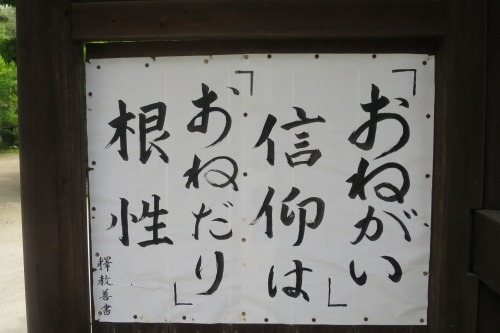 「おねがい」
信仰は
「おねだり」
根性
釋教善書